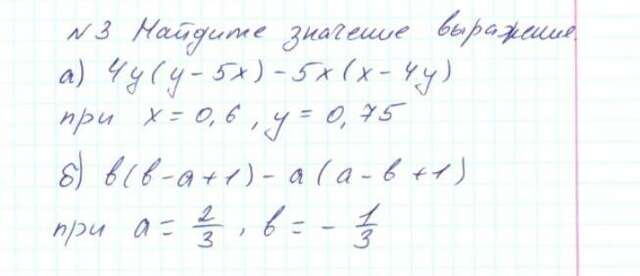 №3 Найдите значение выражение.
а) 4y(y-5x)-5x(x-4y)
при x=0,6, y=0,75
б) в(в-а+1)-а(а-в+1)
при а=2/3, в=-1/3